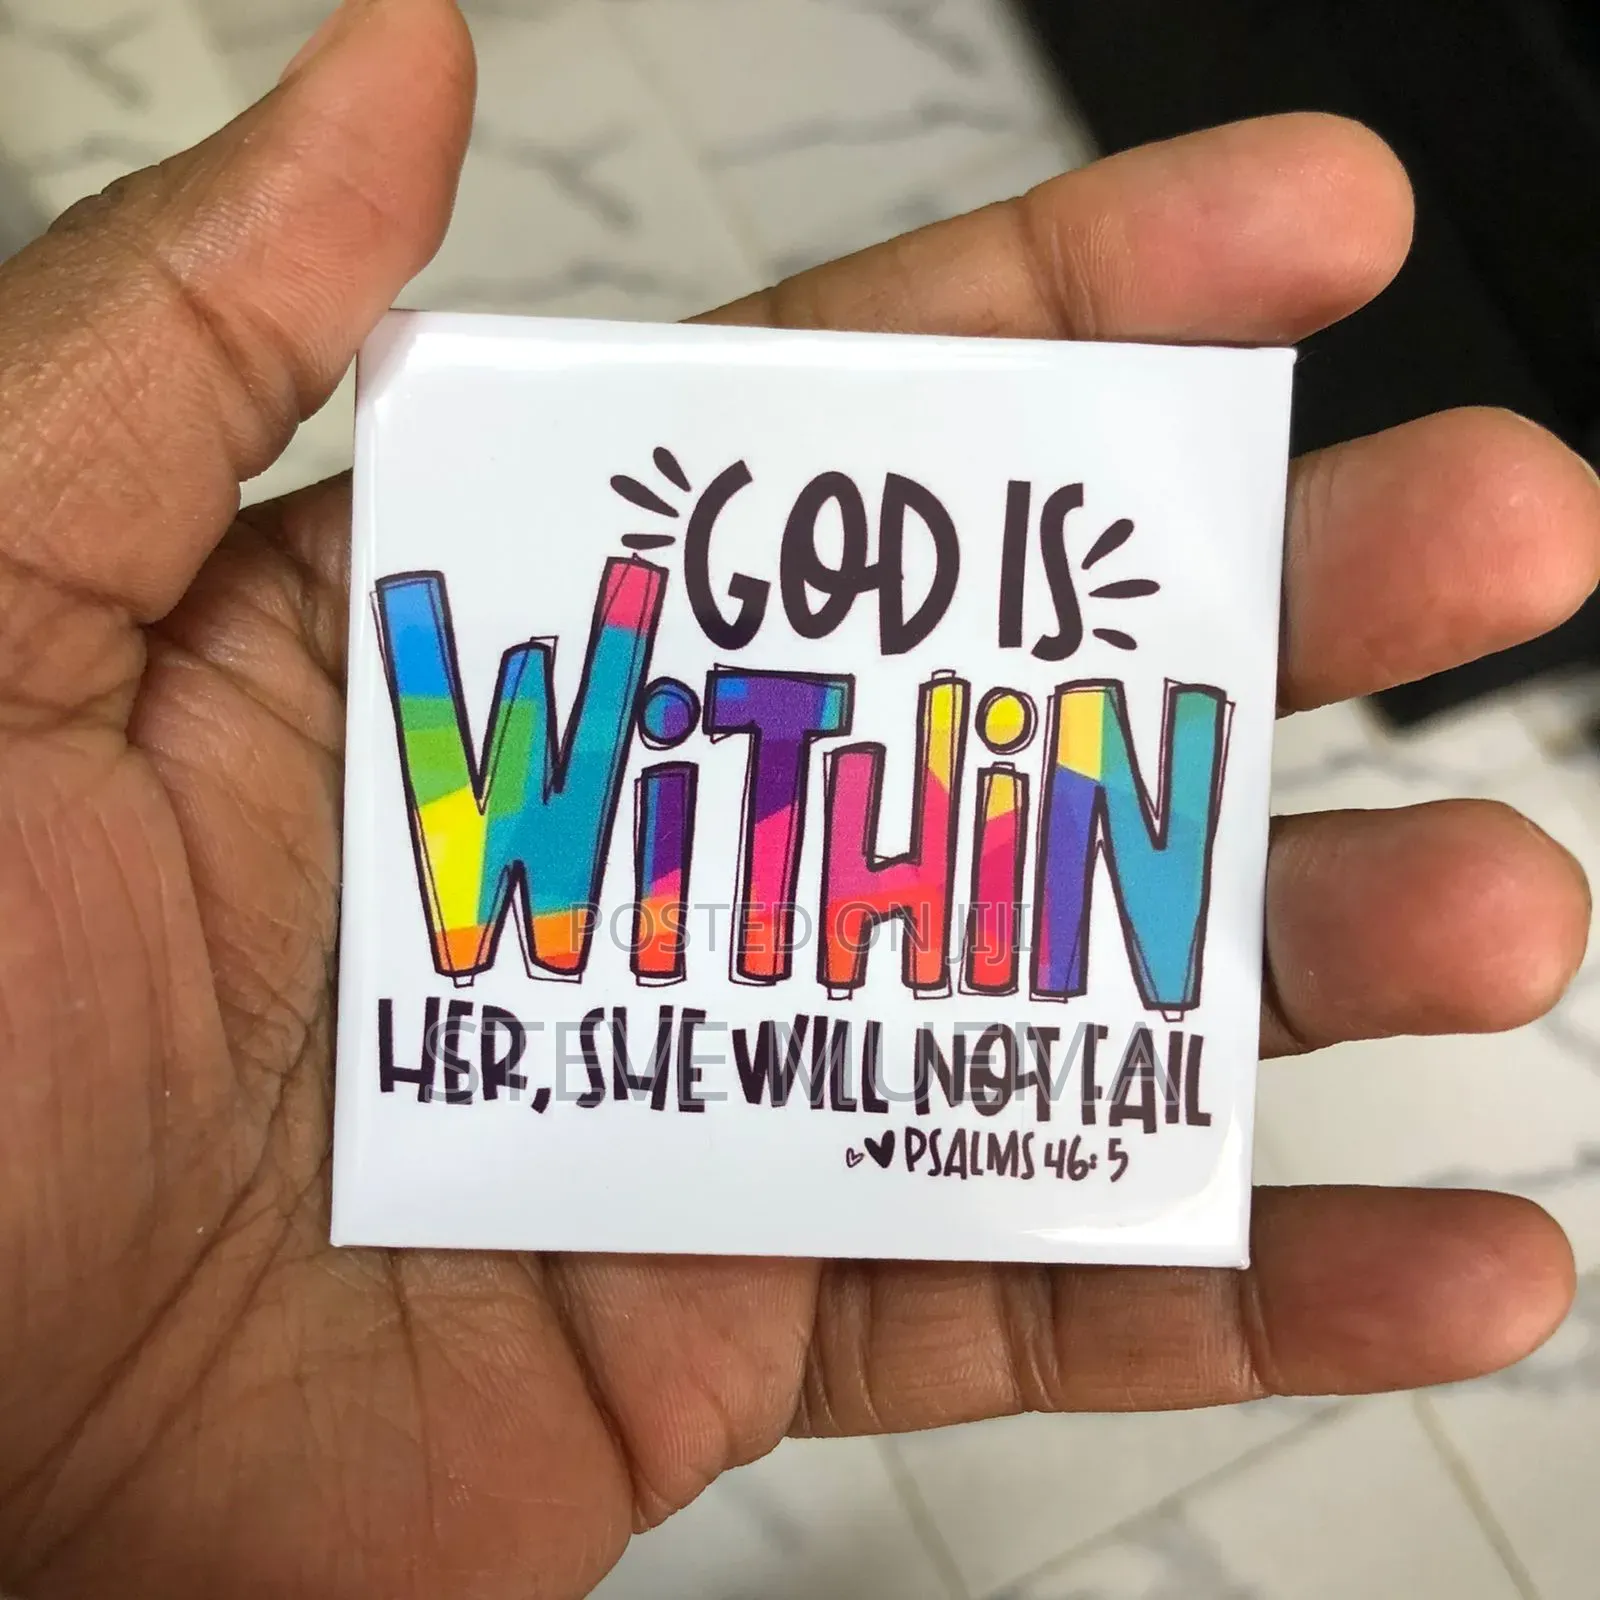 GOD IS
WiTHiN
HER, SHE WILL NOT FAIL
PSALMS 46:5
POSTED ON JIJI
STEVE MUEMA